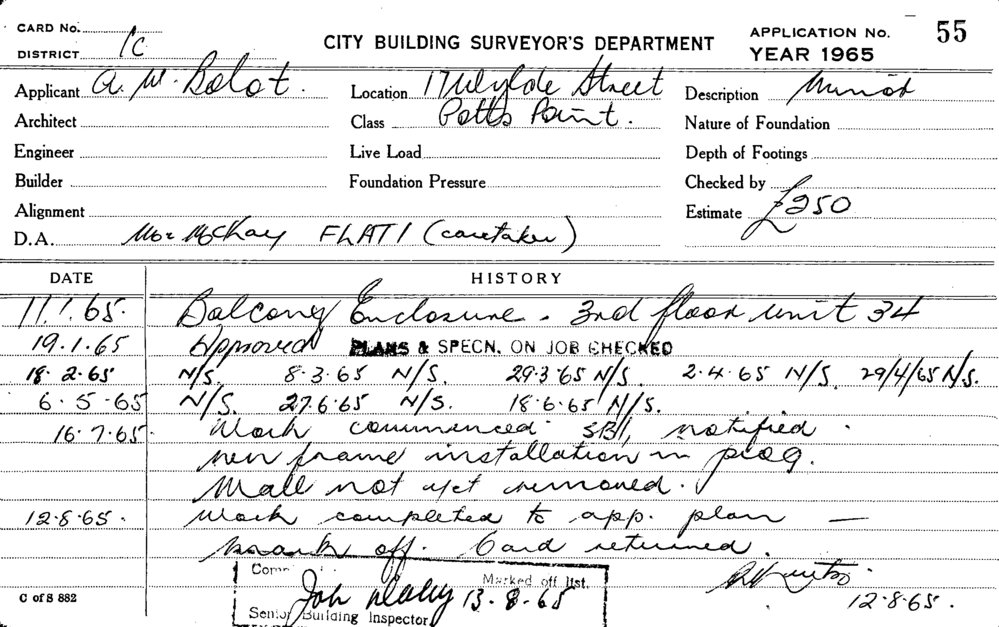 CARD No.
DISTRICT 1c
CITY BUILDING SURVEYOR'S DEPARTMENT
APPLICATION No. 55
YEAR 1965
Applicant A. W. Bolot. Location 17 Wylde Street Description Minor
Architect Class Potts Point. Nature of Foundation
Engineer Live Load Depth of Footings
Builder Foundation Pressure Checked by
Alignment Estimate £250
D.A. McKay FLAT 1 (caretaker)
DATE HISTORY
11.1.65. Balcony Enclosure - 3rd floor unit 34
19.1.65 Approved PLANS & SPECN. ON JOB CHECKED
18.2.65 N/S. 8.3.65 N/S. 29.3.65 N/S. 2.4.65 N/S. 29/4/65 N/S.
6.5.65 N/S. 27.6.65 N/S. 18.6.65 N/S.
16.7.65. Work commenced notified.
new frame installation in prog.
Wall not yet removed.
12.8.65. Work completed to app. plan —
mark off. Card returned.
12.8.65.
Marked off list.
13.8.65
Senior Building Inspector
C of S 882